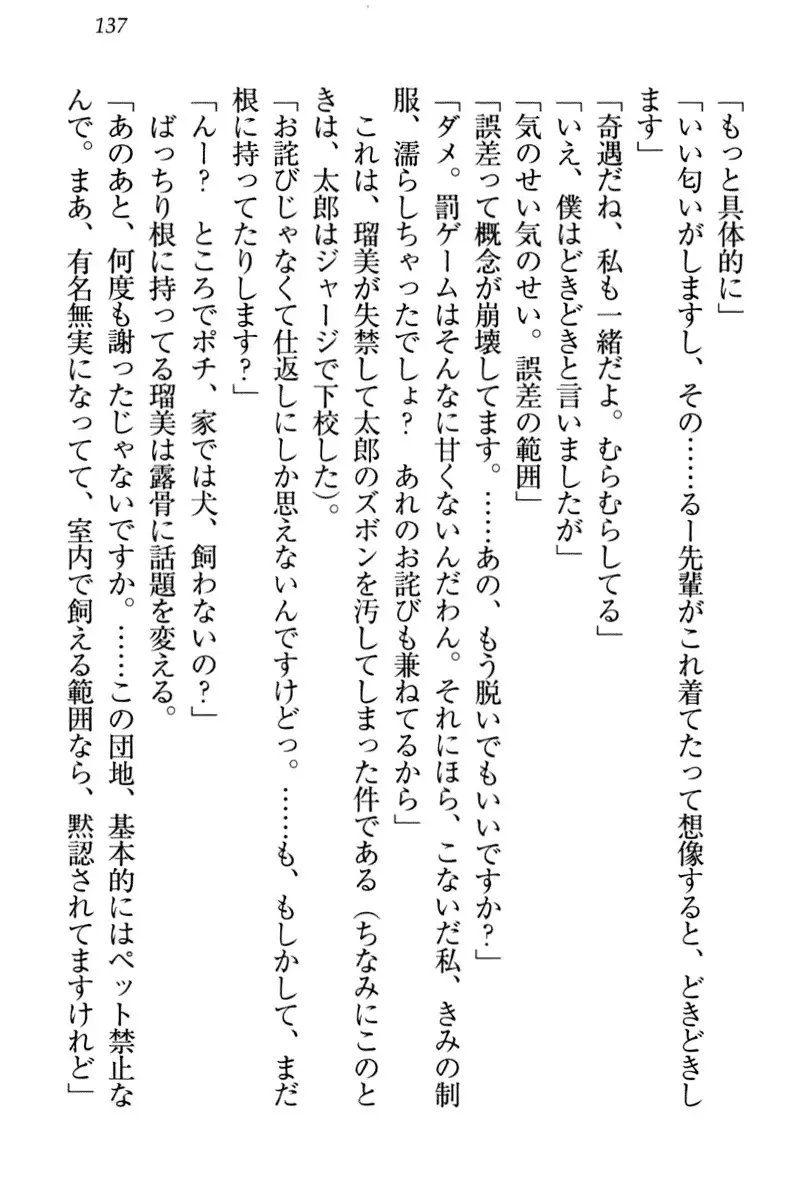 137
「もっと具体的に」
「いい匂いがしますし、その……るー先輩がこれ着てたって想像すると、どきどきし
ます」
「奇遇だね、私も一緒だよ。むらむらしてる」
「いえ、僕はどきどきと言いましたが」
「気のせい気のせい。誤差の範囲」
「誤差って概念が崩壊してます。……あの、もう脱いでもいいですか?」
「ダメ。罰ゲームはそんなに甘くないんだわん。それにほら、こないだ私、きみの制
服、濡らしちゃったでしょ? あれのお詫びも兼ねてるから」
これは、瑠美が失禁して太郎のズボンを汚してしまった件である(ちなみにこのと
きは、太郎はジャージで下校した)。
「お詫びじゃなくて仕返しにしか思えないんですけどっ。……も、もしかして、まだ
根に持ってたりします?」
「んー? ところでポチ、家では犬、飼わないの?」
ばっちり根に持ってる瑠美は露骨に話題を変える。
「あのあと、何度も謝ったじゃないですか。……この団地、基本的にはペット禁止な
んで。まあ、有名無実になってて、室内で飼える範囲なら、黙認されてますけれど」